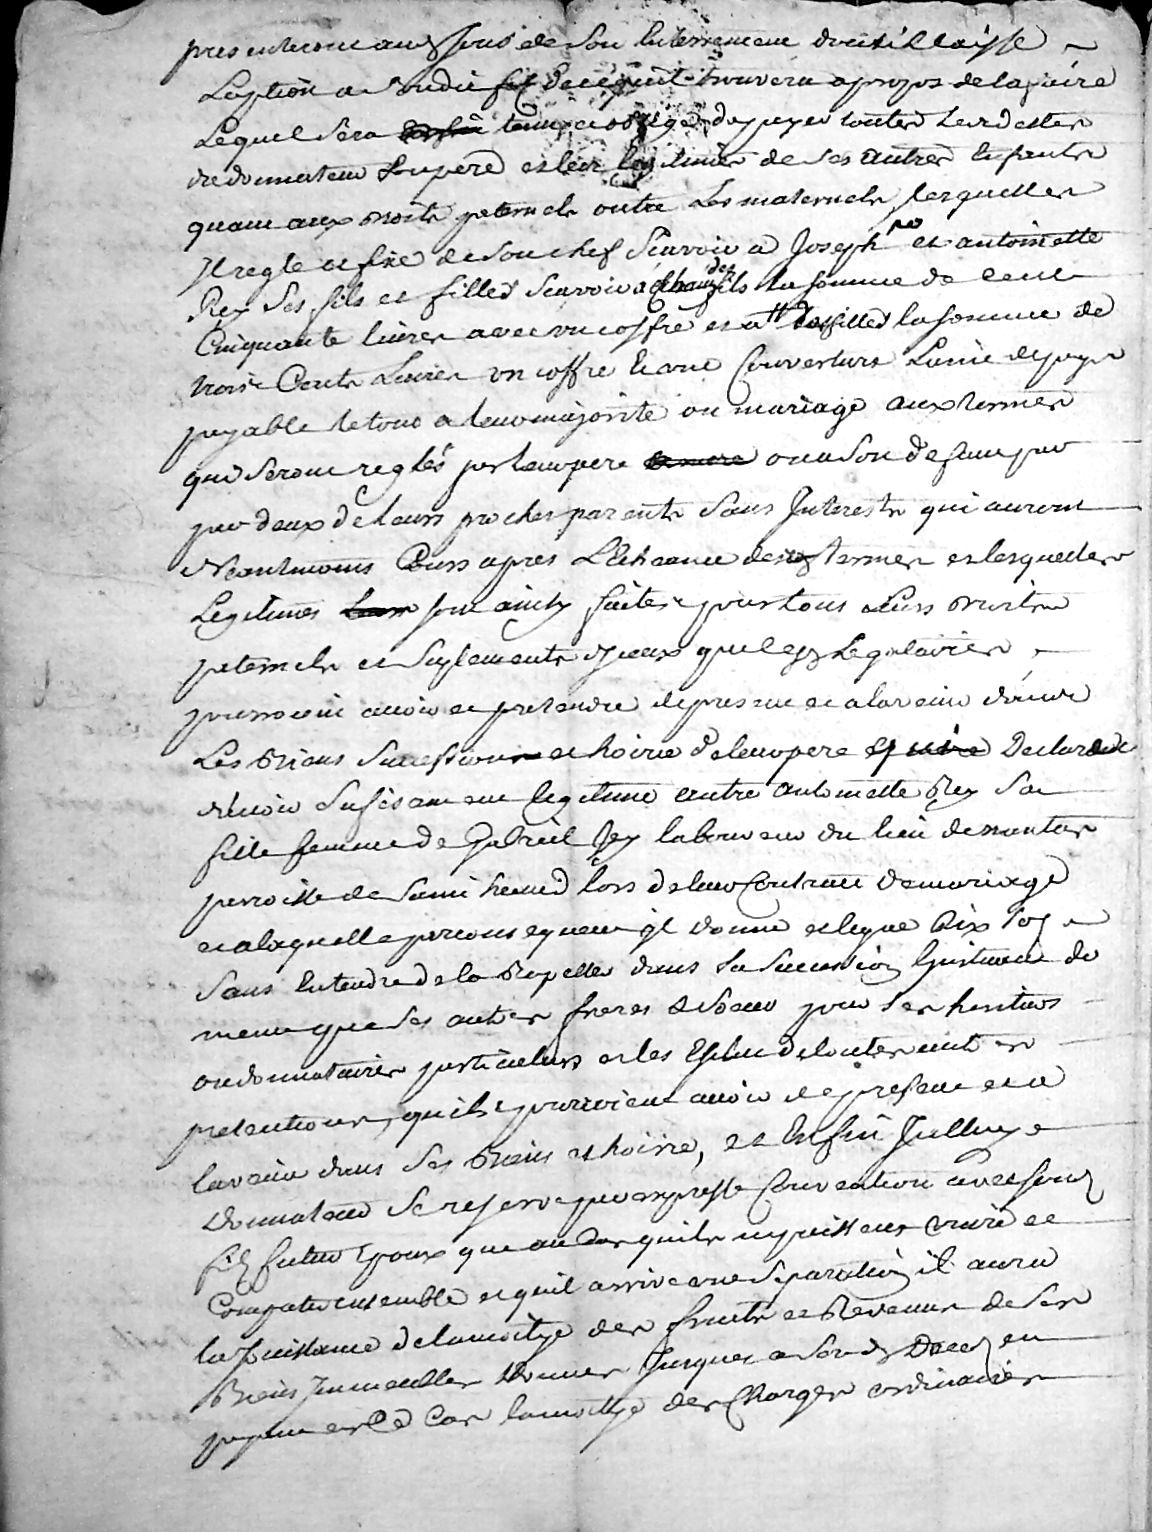 presenteront aux jour de son enterrement dont il laisse
L'option a sondit fils de ce quil trouvera a propos de la faire
Lequel sera tenu et obligé de payer toutes les dettes
du donnateur son pere et les legitimes de ses autres enfants
quant aux droits paternels outre les maternels, lesquelles
Il regle et fixe de son chef scavoir a Joseph et antoinette
Rey ses fils et filles scavoir a chacun des fils la somme de cent
Cinquante livres avec un coffre et a filles la somme de
trois Cents Livres un coffre et une Couverture Laine de pays
payable le tout a leur majorité ou mariage aux termes
qui seront reglés par leur pere ou a son defaut par
par deux de leurs proches parents sans Interests qui auront
Neantmoins Cours apres L'Echeance desdits termes et lesquelles
Legitimes sont ainsy faites pour tous leurs droits
paternels et suplements d'yceux que lesd Legataires
pourroient avoir et pretendre de present et a lavenir dans
Les Biens Succession et hoirie de leur pere Declarant
d'avoir sufisament legitimé autre antoinette Rey sa
fille femme de Gabriel Rey laboureur du lieu de
parroisse de Saint lors de leur Contract de mariage
et a laquelle par consequent il donne et legue dix sols
sans entendre de la Rapeller dans sa succession non
meme que ses autres freres et soeur pour ses heritiers
ou donnataires particuliers et les Exclut de toutes autres
pretentions, quils pourroient avoir de present et a
lavenir dans ses Biens et hoirie, et Enfin Jcelluy
donnateur se reserve par expresse Convention avec son
fils futur Epoux que au Cas quils ne puissent vivre et
Compatir ensemble et quil arrive une Separation il aura
la Jouissance de la moitye des fruits et Revenus de ses
Biens Immeubles donnes Jusques a son Deces en
payant en Ce Cas la moitye des Charges ordinaires